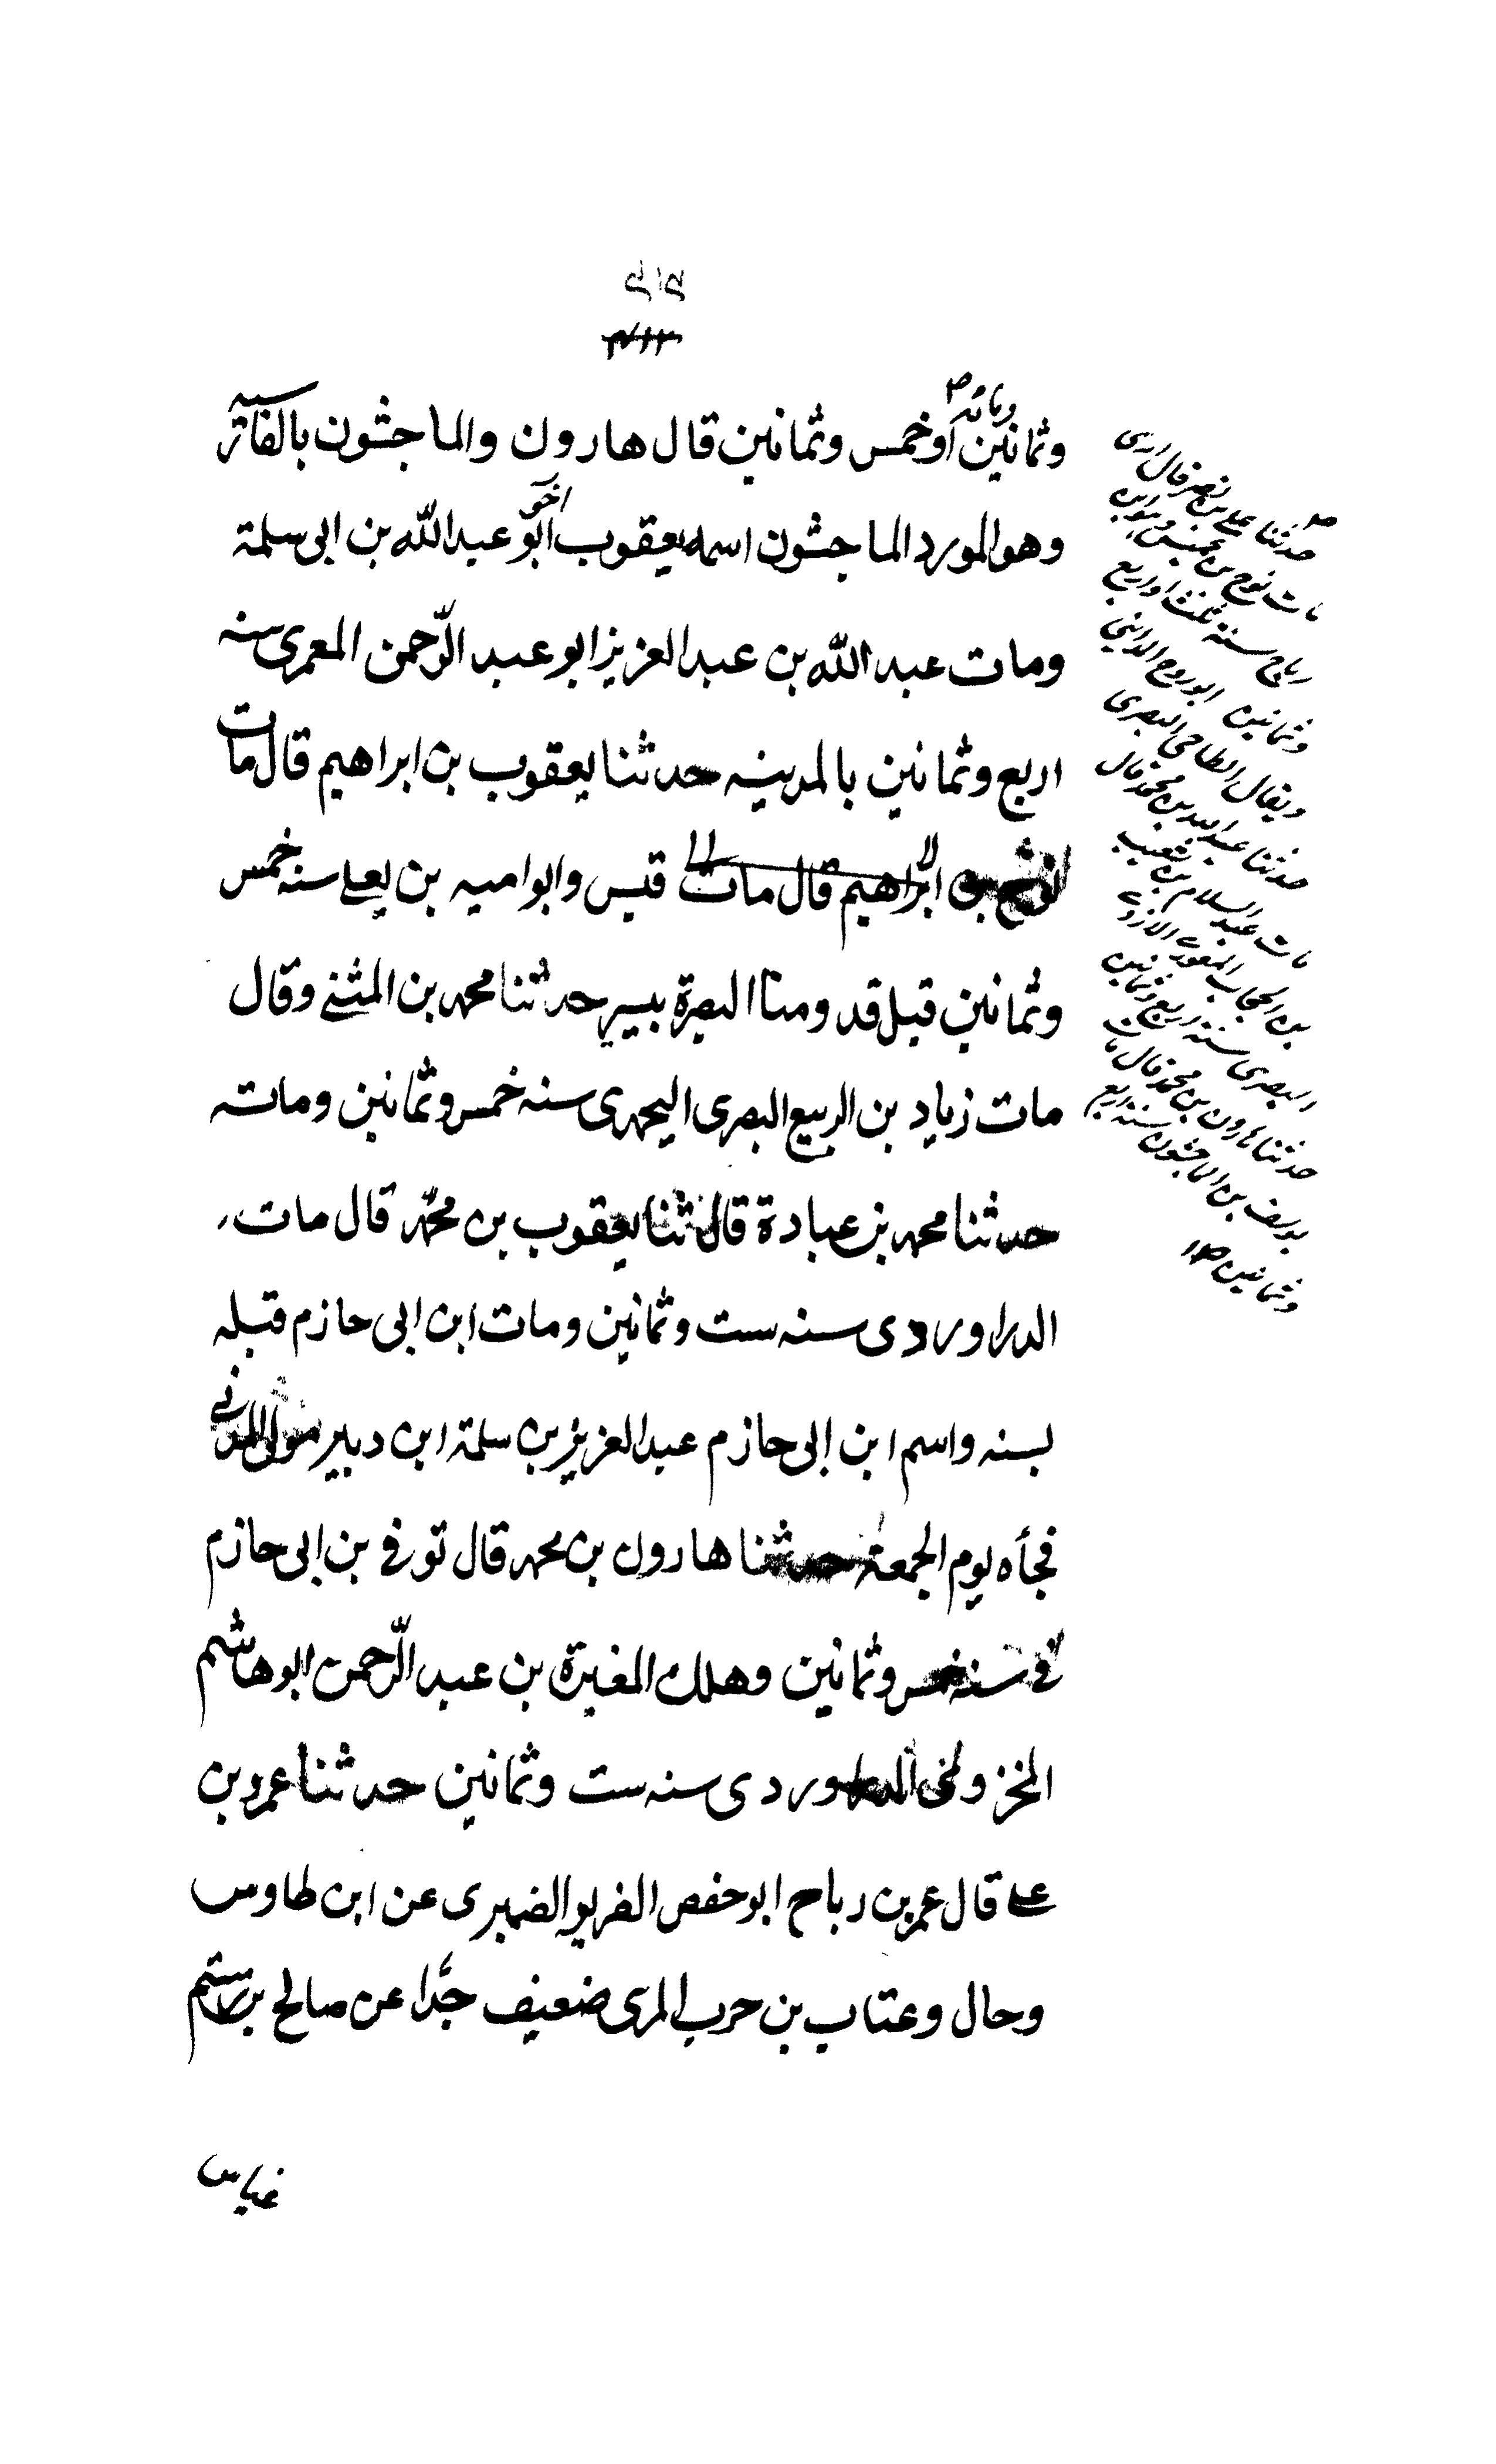 وثمانين ومائة أو خمس وثمانين قال هارون والماجشون بالفارسية
وهو المورد الماجشون اسمه يعقوب اخو ابو عبد الله بن ابى سلمة
ومات عبد الله بن عبد العزيز ابو عبد الرّحمن المعمرى سنه
اربع وثمانين بالمدينه حدثنا يعقوب بن ابراهيم قال مات
نوح بن ابراهيم قال مات قيس وابو اميه بن يعلے سنه خمس
وثمانين قبل قدومنا البصرة بيسير حدثنا محمد بن المثنے وقال
مات زياد بن الربيع البصرى اليحمدى سنه خمس وثمانين ومات
حدثنا محمد بن عبادة قال ثنا يعقوب بن محمّد قال مات
الدراوردى سنه ست وثمانين ومات ابن ابى حازم قبله
بسنه واسم ابن ابى حازم عبد العزيز بن سلمة ابن دينار مولى المدنے
فجأه يوم الجمعة حدثنا هارون بن محمد قال توفى بن ابى حازم
فى سنه خمس وثمانين وهلك المغيرة بن عبد الرّحمن ابو هاشم
المخزولخى الدراوردى سنه ست وثمانين حدثنا عمرو بن
علے قال عمر بن رباح ابو حفص الضرير عن ابن طاوس
وحال وعتاب بن حرب المرى ضعيف جدّا عن صالح بن رستم
حدثنا على بن نصر قال
مات نوح بن قيس
رباح سنة ثلث او اربع
وثمانين ابو روح
ويقال الطاحى البصرى
حدثنا عبد الله بن محمد قال
مات عبد السلام بن شعيب
بن الحجاب المعولے الازدے
البصرى سنة اربع وثمانين
حدثنا هارون بن محمد قال مات
يوسف بن الماجشون سنة اربع
وثمانين